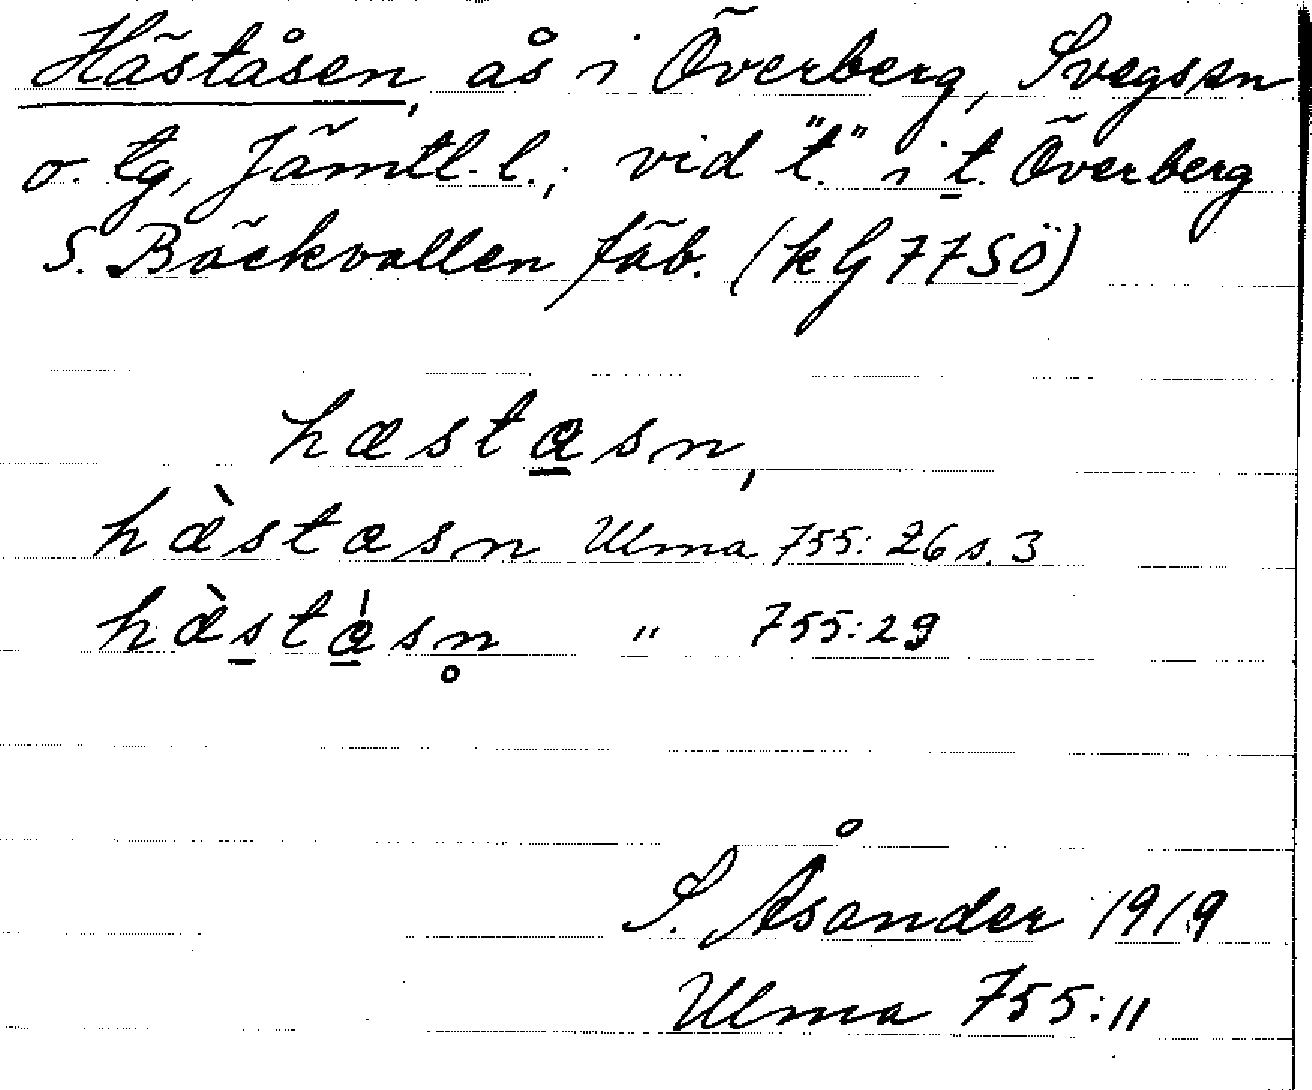 Häståsen, ås i Överberg, Svegs sn
o. tg, Jämtl. l.; vid "t." i t. Överberg
S. Bäckvallen fäb. (k G 77 SÖ)
hæsta̲sn,
hæ̀stasn Ulma 755:26 s. 3
hæ̀s̲ta̲̍sn̥ " 755:29
S. Åsander 1919
Ulma 755:11